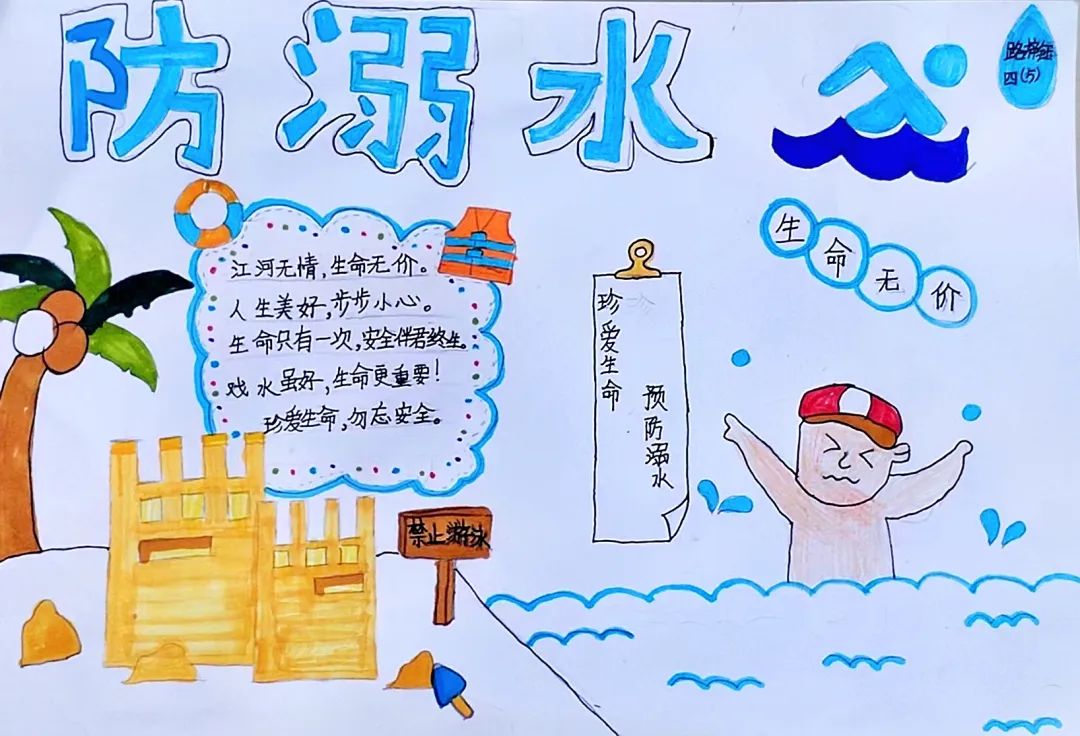 防溺水
四(5)
江河无情,生命无价。
人生美好,步步小心。
生命只有一次,安全伴君终生。
戏水虽好,生命更重要!
珍爱生命,勿忘安全。
珍爱生命
预防溺水
生命无价
禁止游泳